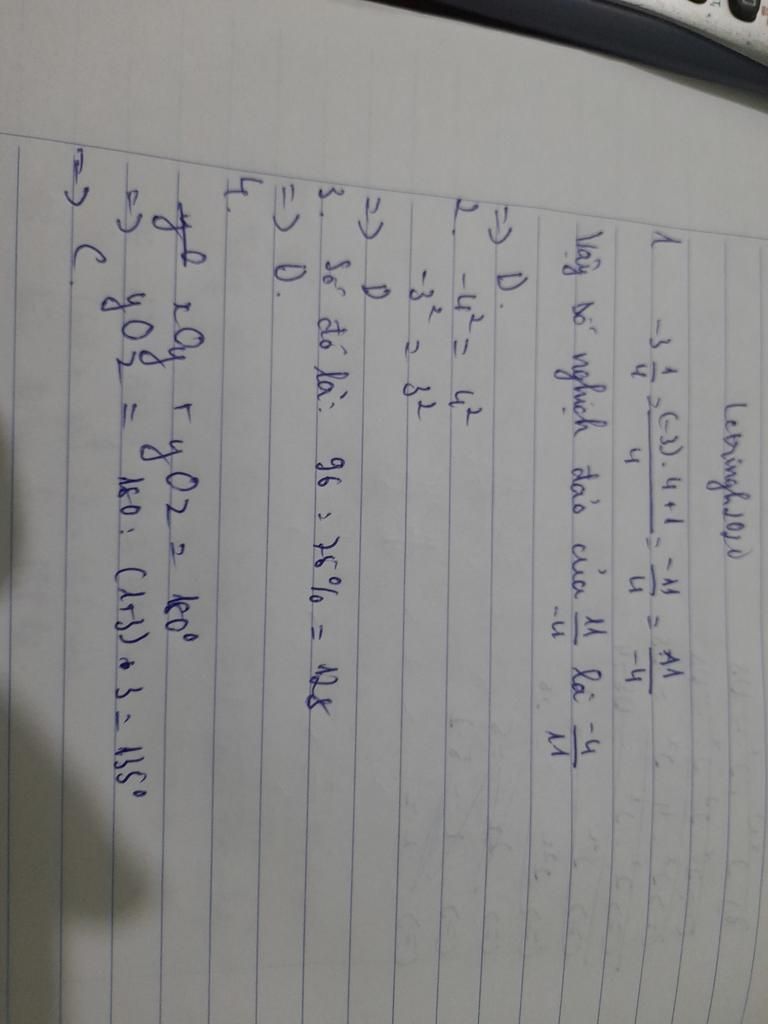 1 -3 1/4 = (-3).4+1/4 = -11/4 = 11/-4
Vậy số nghịch đảo của 11/-4 là -4/11
=> D.
2. -4² = 4²
-3² = 3²
=> D
3. Số đó là: 96 : 75% = 128
=> D.
4.
xOy + yOz = 180°
=> yOz = 180 : (1+3) . 3 = 135°
=> C